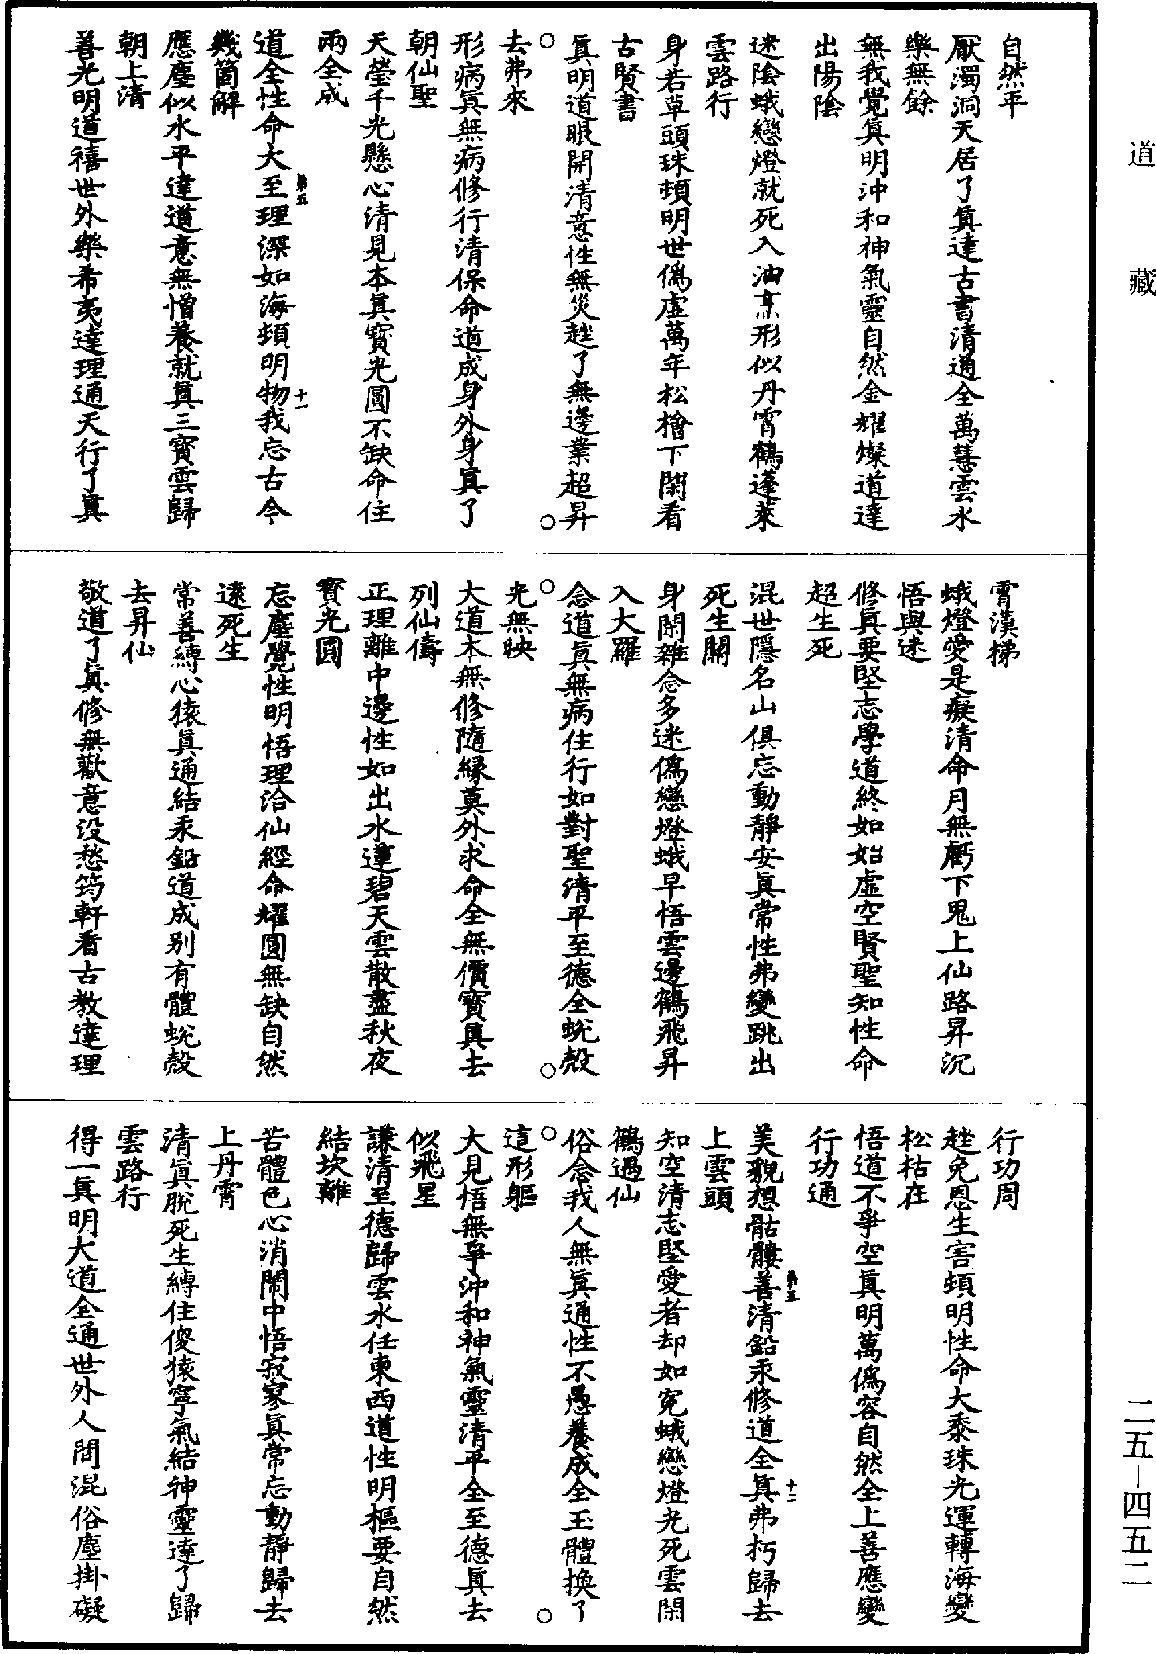 道藏
自然平
厭濁洞天居了真達古書清通全萬慧雲水
樂無餘
無我覺真明沖和神氣靈自然金耀燦道達
出陽陰
迷陰蛾戀燈就死入油烹形似丹霄鶴蓬萊
雲路行
身若草頭珠頓明世偽虛萬年松檜下閑看
古賢書
真明道眼開清意性無災趓了無邊業超昇
○○
去弗來
形病真無病修行清保命道成身外身真了
朝仙聖
天瑩千光懸心清見本真寶光圓不缺命住
兩全成
道全性命大至理深如海頓明物我忘古今
第五
十一
幾箇解
應塵似水平達道意無憎養就真三寶雲歸
朝上清
善光明道禧世外樂希夷達理通天行了真
霄漢携
蛾燈愛是癡清命月無虧下鬼上仙路昇沉
悟與迷
修真要堅志學道終如始虛空賢聖知性命
超生死
混世隱名山俱忘動靜安真常性弗變跳出
死生關
身閑雜念多迷偽戀燈蛾早悟雲邊鶴飛昇
入大羅
念道真無病住行如對聖清平至德全蛻殼
○○
光無映
大道本無修隨緣莫外求命全無價寶真去
列仙儔
正理離中邊性如出水蓮碧天雲散盡秋夜
寶光圓
忘塵覺性明悟理洽仙經命耀圓無缺自然
遠死生
常善縛心猿真通結汞鉛道成別有體蛻殼
去昇仙
敬道了真修無歡意没愁筠軒看古教達理
行功周
趓免恩生害頓明性命大泰珠光運轉海變
松枯在
悟道不爭空真明萬偽容自然全上善應變
行功通
美貌想骷髏善清鉛汞修道全真弗朽歸去
第五
十二
上雲頭
知空清志堅愛者却如冤蛾戀燈光死雲閑
鶴遇仙
俗念我人無真通性不愚養成全玉體換了
○○
這形軀
大見悟無爭沖和神氣靈清平全至德真去
似飛星
謙清至德歸雲水任東西道性明樞要自然
結坎離
苦體色心消鬧中悟寂寥真常忘動靜歸去
上丹霄
清真脫死生縛住傻猿寧氣結神靈達了歸
雲路行
得一真明大道全通世外人間混俗塵掛礙
二五—四五二